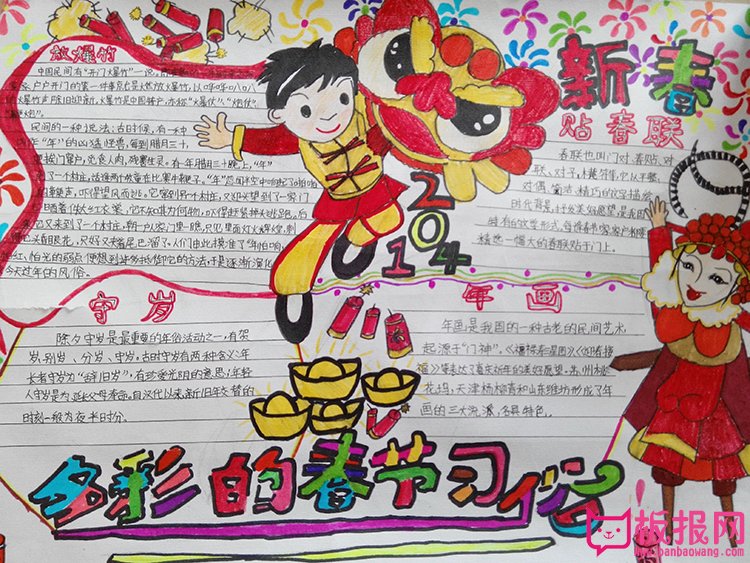 放爆竹
中国民间有"开门爆竹"一说
户户开门的第一件事就是燃放爆竹,以哔哔叭叭
的爆竹声除旧迎新。爆竹是中国特产,亦称"爆仗"、"炮仗"
民间的一种说法:古时候,有一种
叫作"年"的凶猛怪兽,每到腊月三十,
挨门窜户,觅食人肉,残害生灵。有一年腊月三十晚上,"年"
到了一个村庄,适逢两个牧童在比赛牛鞭子。"年"忽闻半空中响起了啪啪
的鞭声,吓得望风而逃。它窜到另一个村庄,又迎头望到了一家门
口晒着件大红衣裳,它不知其为何物,吓得赶紧掉头逃跑。后
来它又来到了一个村庄,朝一户人家门里一瞧,只见里面灯火辉煌,刺
得它头昏眼花,只好又夹着尾巴溜了。人们由此摸准了"年"怕响,
怕红,怕光的弱点,便想到许多抵御它的方法,于是逐渐演化成
今天过年的风俗。
新春
贴春联
春联也叫门对、春贴、对
联、对子、桃符等,它以工整、
对偶、简洁、精巧的文字描绘
时代背景,抒发美好愿望,是我国
特有的文学形式。每逢春节,家家户户都要
精选一幅大的春联贴于门上
2014
守岁
除夕守岁是最重要的年俗活动之一,有贺
岁、别岁、分岁、守岁。古时守岁有两种含义:年
长者守岁为"辞旧岁",有珍爱光阴的意思;年轻
人守岁是为延长父母寿命。自汉代以来,新旧年交替的
时刻一般为夜半时分。
年画
年画是我国的一种古老的民间艺术,
起源于"门神"。《福禄寿三星图》《迎春接
福》等表达了喜庆好年的美好愿望。苏州桃
花坞、天津杨柳青和山东潍坊形成了年
画的三大流派,各具特色。
多彩的春节习俗
板报网
banbaowang.com